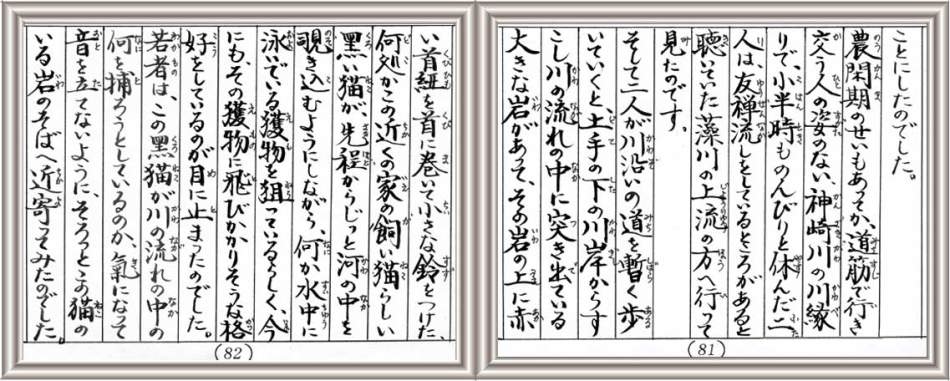 ことにしたのでした。
農閑期のせいもあってか、道筋で行き
交う人の姿のない、神崎川の川縁
りで、小半時ものんびりと休んだ二
人は、友禅流しをしているところがあると
聴いていた藻川の上流の方へ行って
見たのです。
そして二人が川沿いの道を暫く歩
いていくと、土手の下の川岸からす
こし川の流れの中に突き出ている
大きな岩があって、その岩の上に赤
(81)
い首紐を首に巻いて小さな鈴をつけた、
何処かこの近くの家の飼い猫らしい
黒い猫が、先程からじっと河の中を
覗き込むようにしながら、何か水中に
泳いでいる獲物を狙っているらしく、今
にも、その獲物に飛びかかりそうな格
好をしているのが目に止まったのでした。
若者は、この黒猫が川の流れの中の
何を捕ろうとしているのか、氣になって
音を立てないように、そろっとこの猫の
いる岩のそばへ近寄ってみたのでした。
(82)